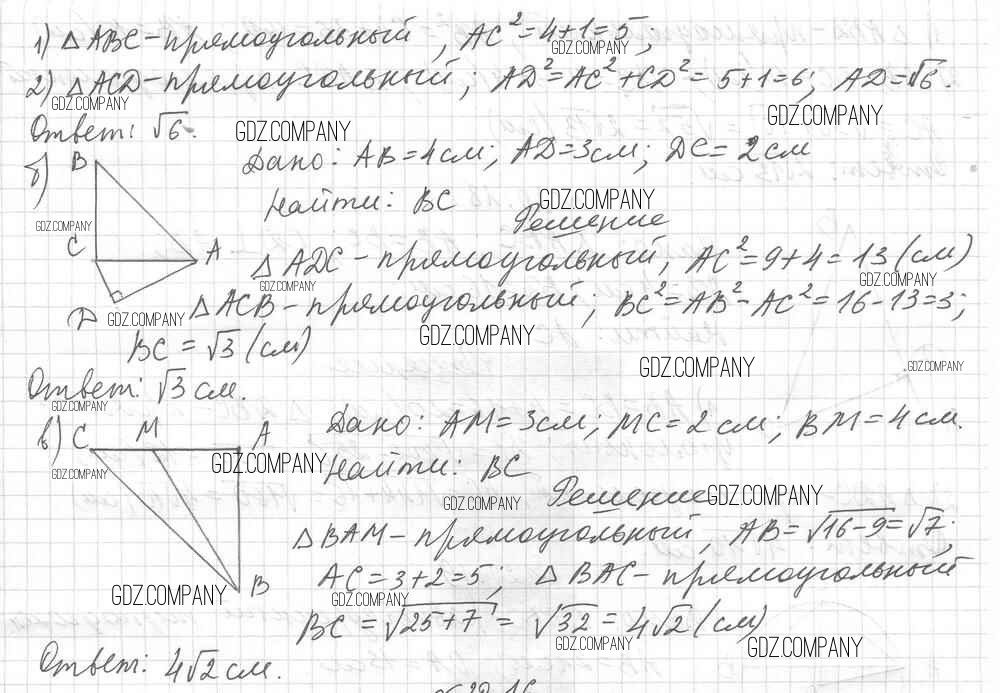 1) △ABC - прямоугольный, AC² = 4+1 = 5;
GDZ.COMPANY
2) △ACD - прямоугольный; AD² = AC² + CD² = 5+1 = 6; AD = √6.
GDZ.COMPANY
GDZ.COMPANY
Ответ: √6.
GDZ.COMPANY
б) B
Дано: AB = 4 см; AD = 3 см; DC = 2 см
Найти: BC
GDZ.COMPANY
Решение
GDZ.COMPANY
C
A
△ADC - прямоугольный, AC² = 9+4 = 13 (см)
GDZ.COMPANY
GDZ.COMPANY
D
GDZ.COMPANY
△ACB - прямоугольный; BC² = AB² - AC² = 16-13 = 3;
GDZ.COMPANY
BC = √3 (см)
GDZ.COMPANY
GDZ.COMPANY
Ответ: √3 см.
GDZ.COMPANY
в) C M A
Дано: AM = 3 см; MC = 2 см; BM = 4 см.
GDZ.COMPANY
Найти: BC
GDZ.COMPANY
Решение
GDZ.COMPANY
GDZ.COMPANY
△BAM - прямоугольный, AB = √16-9 = √7;
AC = 3+2 = 5; △BAC - прямоугольный
B
GDZ.COMPANY
GDZ.COMPANY
BC = √25+7 = √32 = 4√2 (см)
GDZ.COMPANY
GDZ.COMPANY
Ответ: 4√2 см.